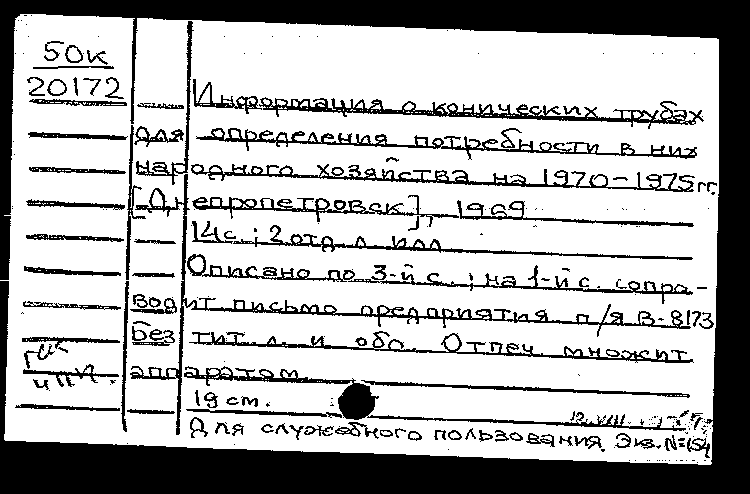 50к
20172
Информация о конических трубах
для определения потребности в них
народного хозяйства на 1970-1975 гг.
[Днепропетровск], 1969
14с.; 2 отд. л. илл
Описано по 3-й с.; на 1-й с. сопра-
водит письмо предприятия п/я В-8173
Без тит. л. и обл. Отпеч. множит
аппаратом
19 см.
Для служебного пользования. Экз. №154